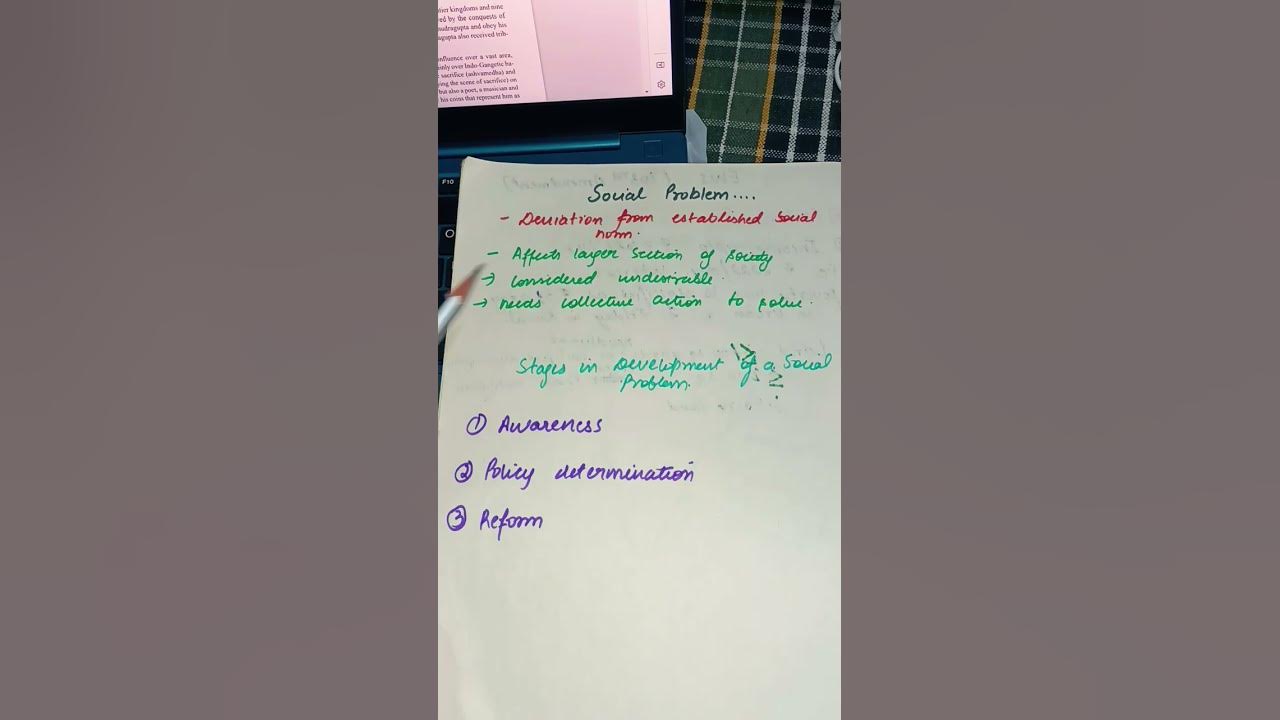 tier kingdoms and nine
ved by the conquests of
mudragupta and obey his
agupta also received trib-
influence over a vast area,
ainly over Indo-Gangetic ba-
sacrifice (ashvamedha) and
ying the scene of sacrifice) on
but also a poet, a musician and
his coins that represent him as
F10
O
Social Problem....
- Deviation from established Social
norm.
- Affects larger section of society
→ considered undesirable.
→ needs collective action to solve.
Stages in Development of a Social
Problem.
① Awareness
② Policy determination
③ Reform